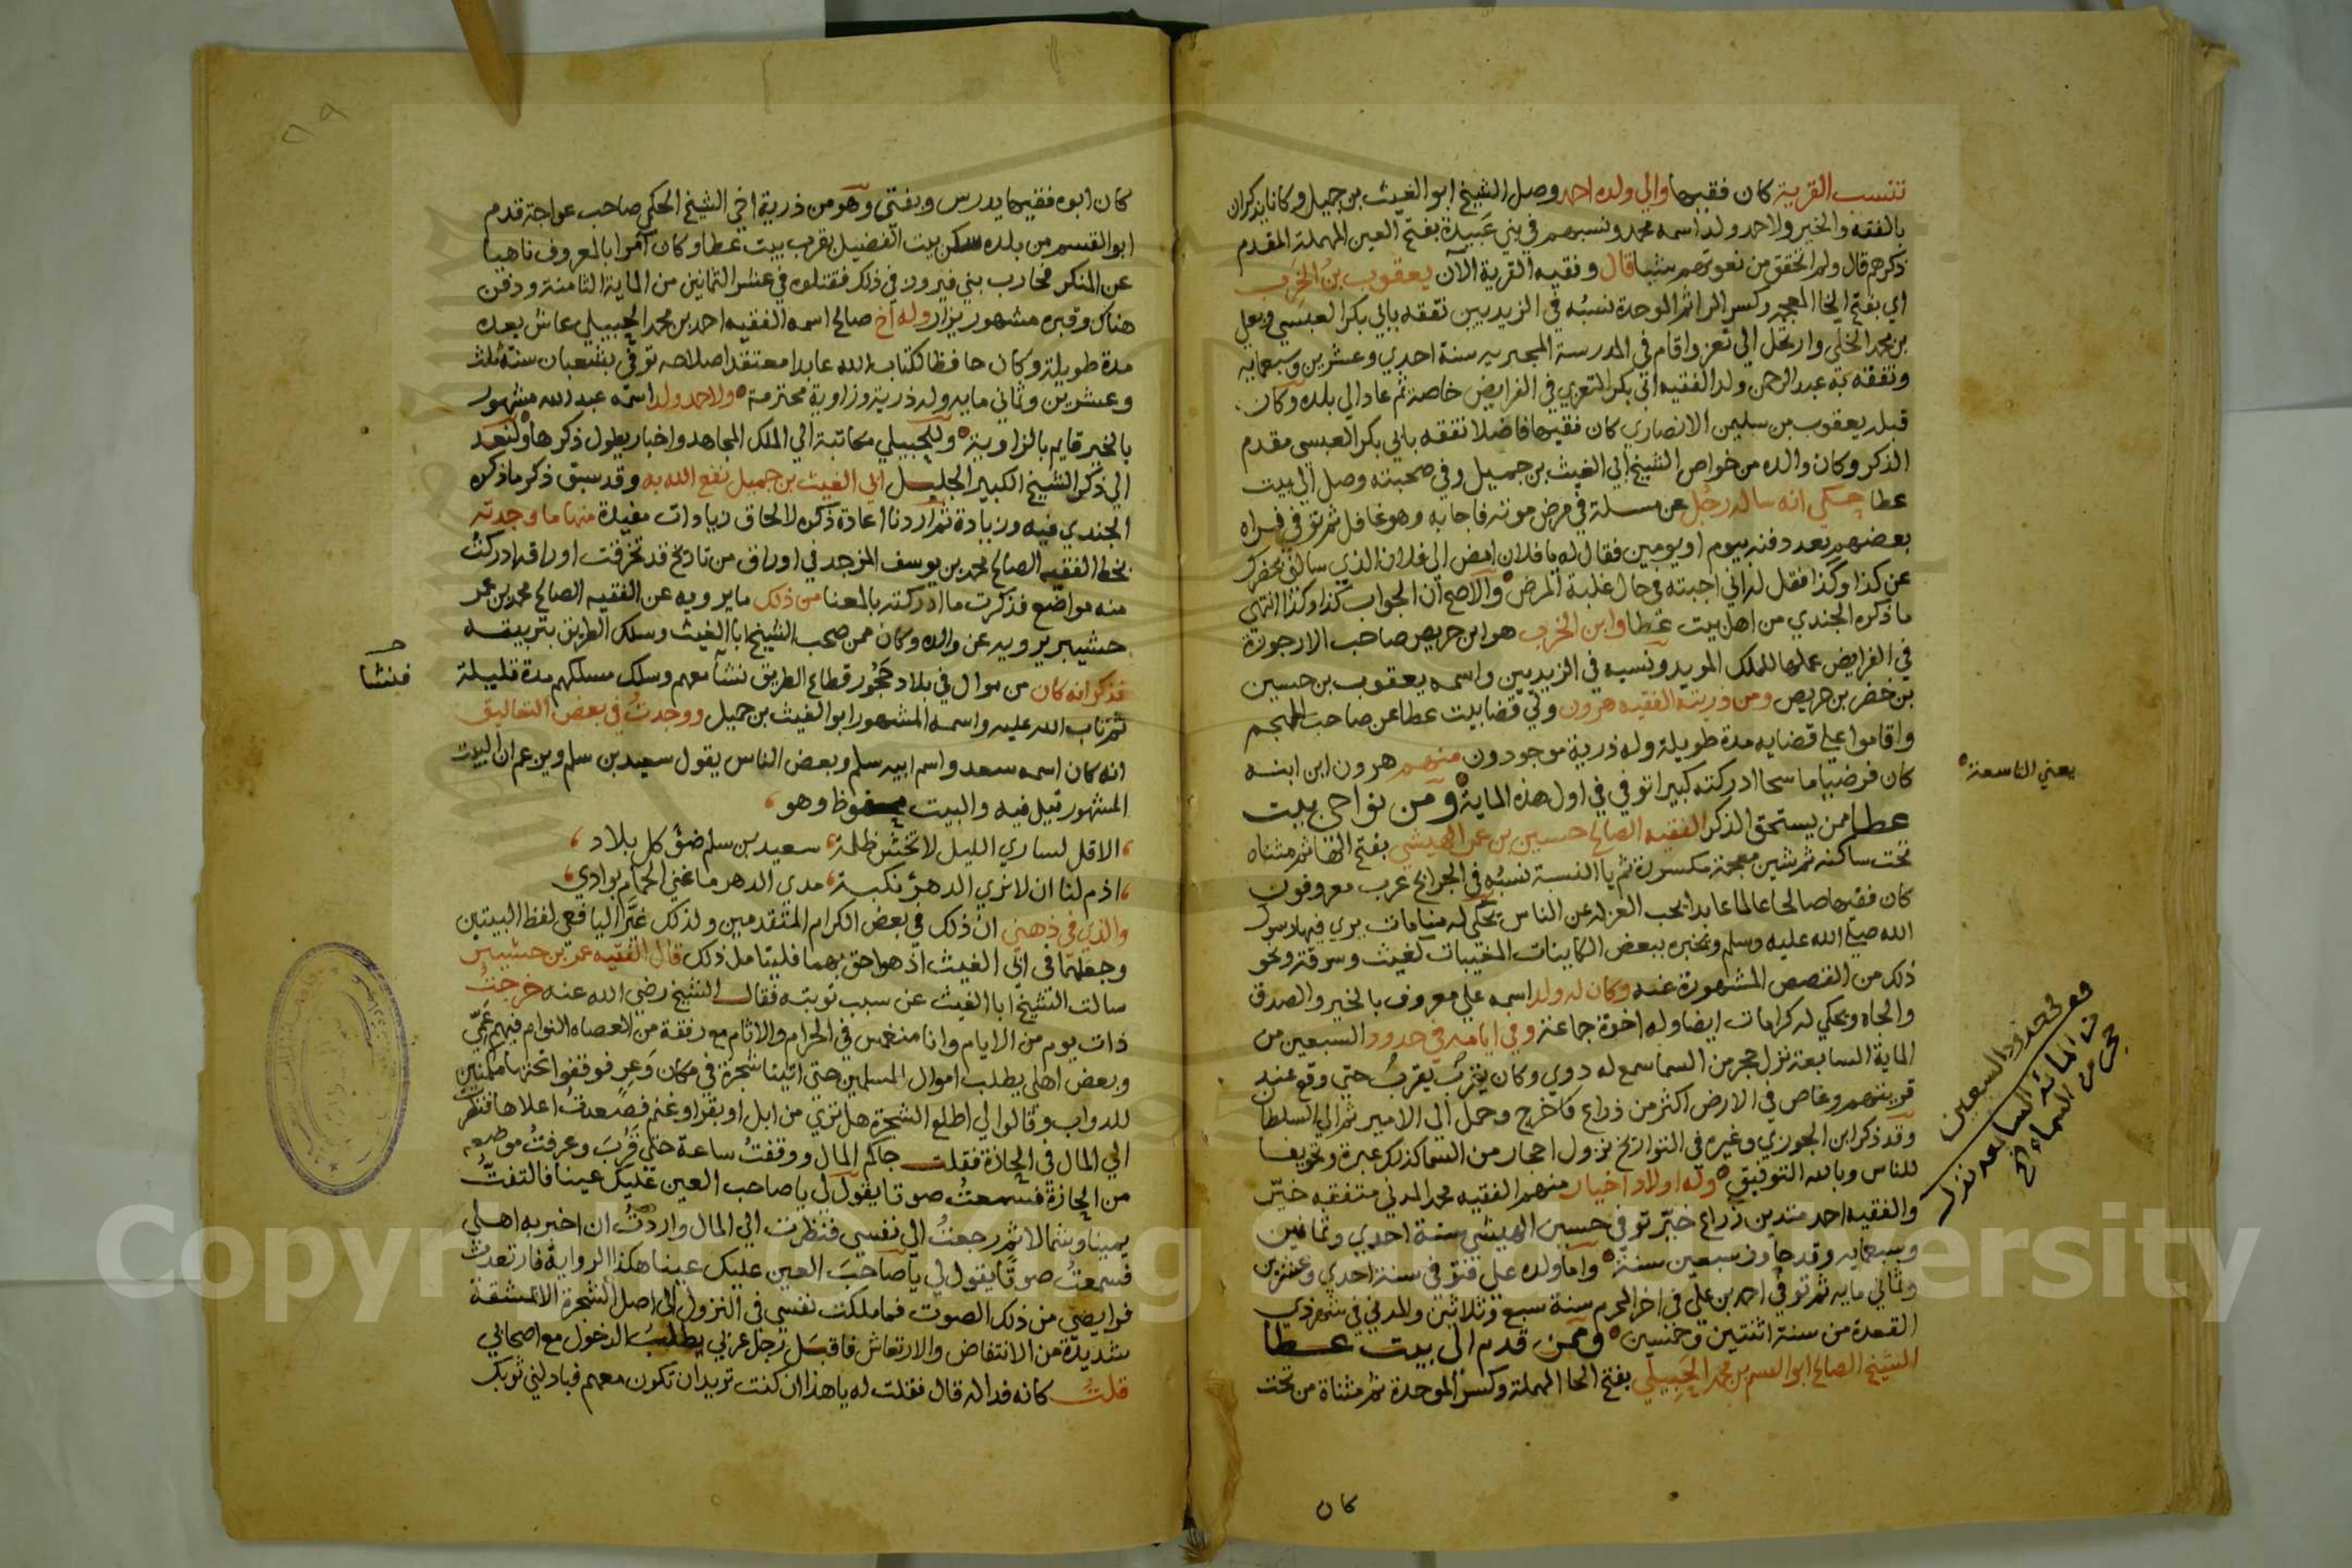 تنسب القرية كان فقيها والي ولده احمد وصل الشيخ ابو الغيث بن جميل وكانا يذكران
بالفقه والخير ولاحمد ولد اسمه محمد ونسبهم في بني عَبيدة بفتح العين المهملة المقدم
ذكرهم قال ولم اتحقق من نعوتهم شيا قال وفقيه القرية الآن يعقوب بنُ الخَرِب
اي بفتح الخا المعجمه وكسر الرا ثم الموحدة نسبُه في الزيديين تفقه بابي بكر العبسي وبعلي
بن محمد الخلي وارتحل الي تعز واقام في المدرسة المجيريه سنة احدي وعشرين وسبعمايه
وتفقه به عبد الرحمن ولد الفقيه ابي بكر التعزي في الفرايض خاصة ثم عاد الي بلده وكان
قبله يعقوب بن سليمن الانصاري كان فقيها فاضلا تفقه بابي بكر العبسي مقدم
الذكر وكان والده من خواص الشيخ ابي الغيث بن جميل وفي صحبته وصل الي بيت
عطا حكي انه ساله رجُل عن مسلة في مرض موته فاجابه وهو غافل ثم توفي فراه
بعضهم بعد دفنه بيوم او يومين فقال له يا فلان امض الى فلان الذي سالني بحضرتك
عن كذا وكذا فقل له اني اجبته في حال غلبة المرض والاصح ان الجواب كذا وكذا انتهى
ما ذكره الجندي من اهل بيت عطا وابن الخرب هو ابن حريص صاحب الارجوزة
في الفرايض عملها للملك المويد ونسبه في الزيديين واسمه يعقوب بن حسين
بن خضر بن حريص ومن ذريته الفقيه هرون ولي قضا بيت عطا عن صاحب المهجم
واقاموا على قضايه مدة طويلة وله ذرية موجودون منهم هرون ابن ابنه
كان فرضيا ماسحا ادركته كبيرا توفي في اول هذه الماية ومن نواحي بيت
عطا ممن يستحق الذكر الفقيه الصالح حسين بن عمر الهيشي بفتح الها ثم مثناه
تحت ساكنه ثم شين معجمة مكسورة ثم يا النسبة نسبُه في الجرابح عرب معروفون
كان فقيها صالحا عالما عابدا يحب العزله عن الناس يحكي له منامات يري فيها رسول
الله صلى الله عليه وسلم ويخبره ببعض الكاينات المغيبات لغيث وسرقة ونحو
ذلك من القصص المشهورة عنه وكان له ولد اسمه علي معروف بالخير والصدق
والجاه ويحكي له كرامات ايضا وله اخوة جماعة وفي ايامه في حدود السبعين من
الماية السابعة نزل حجر من السما سمع له دوي وكان يقربُ يقربُ حتى وقع عند
قريتهم وغاص في الارض اكثر من ذراع فاخرج وحمل الى الامير ثم الى السلطان
وقد ذكر ابن الجوزي وغيره في التواريخ نزول احجار من السما كذلك عبرة وتخويفا
للناس وبالله التوفيق وله اولاد اخيار منهم الفقيه محمد المدني متفقه خيّر
والفقيه احمد متدين زراع خيّر توفي حسين الهيشي سنة احدي وثمانين
وسبعمايه وقد جاوز سبعين سنة واما ولده علي فتوفي سنة احدي وعشرين
وثماني مايه ثم توفي احمد بن علي في اخر المحرم سنة سبع وثلاثين والمدني في شهر ذي
القعدة من سنة اثنتين وخمسين وممن قدم الى بيت عطا
الشيخ الصالح ابو القسم بن محمد الحَبيبلي بفتح الحا المهملة وكسر الموحدة ثم مثناة من تحت
كان
يعني التاسعة
في حدود السبعين
من المائة السابعة نزل
حجر من السماء الخ
كان ابوه فقيها يدرس ويفتي وهو من ذرية اخي الشيخ الحكمي صاحب عواجة قدم
ابو القسم من بلده سكن بيت الفضيل بقرب بيت عطا وكان آمرا بالمعروف ناهيا
عن المنكر فحارب بني فيرون في ذلك فقتلوه في عشر الثمانين من الماية الثامنة ودفن
هناك وقبره مشهور يزار وله اخ صالح اسمه الفقيه احمد بن محمد الحبيبلي عاش بعده
مدة طويلة وكان حافظا لكتاب الله عابدا معتقدا صلاحه توفي بشعبان سنة ثلث
وعشرين وثماني مايه وله ذرية وزاوية محترمة ولاحمد ولد اسمه عبد الله مشهور
بالخير قايم بالزاوية وللحبيبلي مكاتبة الي الملك المجاهد واخبار يطول ذكرها ولنعد
الي ذكر الشيخ الكبير الجليل ابي الغيث بن جميل نفع الله به وقد سبق ذكر ما ذكره
الجندي فيه وزيادة ثم اردنا اعادة ذكره لالحاق زيادات مفيدة منها ما وجدته
بخط الفقيه الصالح محمد بن يوسف المزجد في اوراق من تاريخ قد تخرقت اوراقه ادركت
منه مواضع فذكرت ما ادركته بالمعنا من ذلك ما يرويه عن الفقيه الصالح محمد بن عمر
حشيبر يرويه عن والده وكان ممن صحب الشيخ ابا الغيث وسلك الطريق بتربيته
فذكر انه كان من موال في بلاد حَجُور قطاع الطريق نشا معهم وسلك مسلكهم مدة قليلة
ثم تاب الله عليه واسمه المشهور ابو الغيث بن جميل ووجدتُ في بعض التعاليق
انه كان اسمه سعد واسم ابيه سلم وبعض الناس يقول سعيد بن سلم ويزعم ان البيت
المشهور قيل فيه والبيت محفوظ وهو
الا قل لساري الليل لا تخش ظلمة سعيد بن سلم ضوُ كل بلاد
اذم لنا ان لا نري الدهرَ نكبة مدي الدهر ما غني الحمام بوادي
والذي في ذهني ان ذلك في بعض الكرام المتقدمين ولذلك غيَّر اليافعي لفظ البيتين
وجعلهما في ابي الغيث اذ هو احق بهما فليتامل ذلك قال الفقيه عمر بن حشيبر
سالت الشيخ ابا الغيث عن سبب توبته فقال الشيخ رضي الله عنه خرجتُ
ذات يوم من الايام وانا منغمس في الحرام والاثام مع رفقة من العصاه النوام فيهم عَمّي
وبعض اهلي يطلب اموال المسلمين حتى اتينا شجرة في مكان وَعِر فوقفوا تحتها مكمنين
للدواب وقالوا لي اطلع الشجرة هل تري من ابل او بقر او غنم فصعدتُ اعلاها فنظرت
الي المال في الجازة فقلت جاكم المال ووقفتُ ساعة حتى قَرُبَ وعرفتُ موضعه
من الجازة فسمعتُ صوتا يقول لي يا صاحب العين عليك عينا فالتفتُ
يمينا وشمالا ثم رجعتُ الى نفسي فنظرت الي المال واردتُ ان اخبر به اهلي
فسمعتُ صوتا يقول لي يا صاحبَ العين عليك عينا هكذا الرواية فارتعدت
فرايصي من ذلك الصوت فما ملكت نفسي في النزول الى اصل الشجرة الا بمشقة
شديدة من الانتفاض والارتعاش فاقبل رجل عربي يطلب الدخول مع اصحابي
قلتُ كانه فدا له قال فقلت له يا هذا ان كنت تريد ان تكون معهم فبادلني ثوبك
فنشا
Copyright © King Saud University